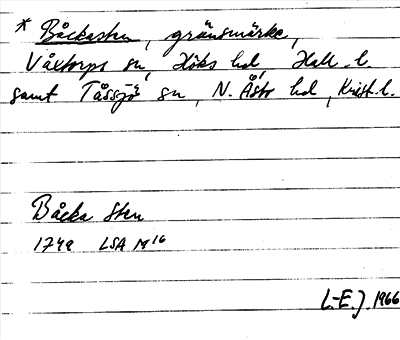 * Båckasten, gränsmärke,
Våxtorps sn, Höks hd, Hall. l.
samt Tåssjö sn, N. Åsbo hd, Krist. l.
Båcka Sten
1749 LSA M16
L-E. J. 1966